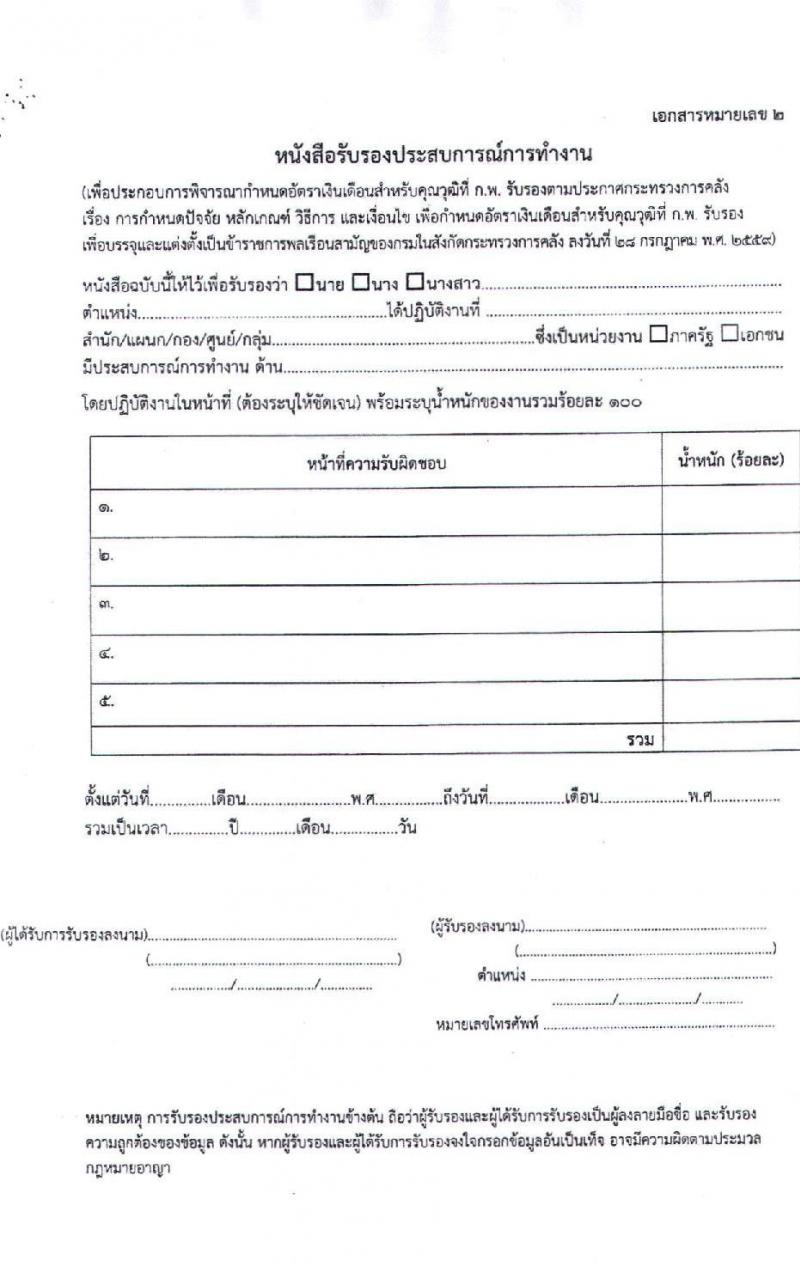 เอกสารหมายเลข ๒
หนังสือรับรองประสบการณ์การทำงาน
(เพื่อประกอบการพิจารณากำหนดอัตราเงินเดือนสำหรับคุณวุฒิที่ ก.พ. รับรองตามประกาศกระทรวงการคลัง
เรื่อง การกำหนดปัจจัย หลักเกณฑ์ วิธีการ และเงื่อนไข เพื่อกำหนดอัตราเงินเดือนสำหรับคุณวุฒิที่ ก.พ. รับรอง
เพื่อบรรจุและแต่งตั้งเป็นข้าราชการพลเรือนสามัญของกรมในสังกัดกระทรวงการคลัง ลงวันที่ ๒๘ กรกฎาคม พ.ศ. ๒๕๕๙)
หนังสือฉบับนี้ให้ไว้เพื่อรับรองว่า ☐นาย ☐นาง ☐นางสาว..............................
ตำแหน่ง..............................ได้ปฏิบัติงานที่ ..............................
สำนัก/แผนก/กอง/ศูนย์/กลุ่ม..............................ซึ่งเป็นหน่วยงาน ☐ภาครัฐ ☐เอกชน
มีประสบการณ์การทำงาน ด้าน..............................
โดยปฏิบัติงานในหน้าที่ (ต้องระบุให้ชัดเจน) พร้อมระบุน้ำหนักของงานรวมร้อยละ ๑๐๐
หน้าที่ความรับผิดชอบ น้ำหนัก (ร้อยละ)
๑.
๒.
๓.
๔.
๕.
รวม
ตั้งแต่วันที่...............เดือน.........................พ.ศ................ถึงวันที่..................เดือน.....................พ.ศ................
รวมเป็นเวลา..............ปี.............เดือน................วัน
(ผู้ได้รับการรับรองลงนาม)..............................
(..............................)
.............../..................../.............
(ผู้รับรองลงนาม)..............................
(..............................)
ตำแหน่ง ..............................
.............../..................../...........
หมายเลขโทรศัพท์ ..............................
หมายเหตุ การรับรองประสบการณ์การทำงานข้างต้น ถือว่าผู้รับรองและผู้ได้รับการรับรองเป็นผู้ลงลายมือชื่อ และรับรอง
ความถูกต้องของข้อมูล ดังนั้น หากผู้รับรองและผู้ได้รับการรับรองจงใจกรอกข้อมูลอันเป็นเท็จ อาจมีความผิดตามประมวล
กฎหมายอาญา